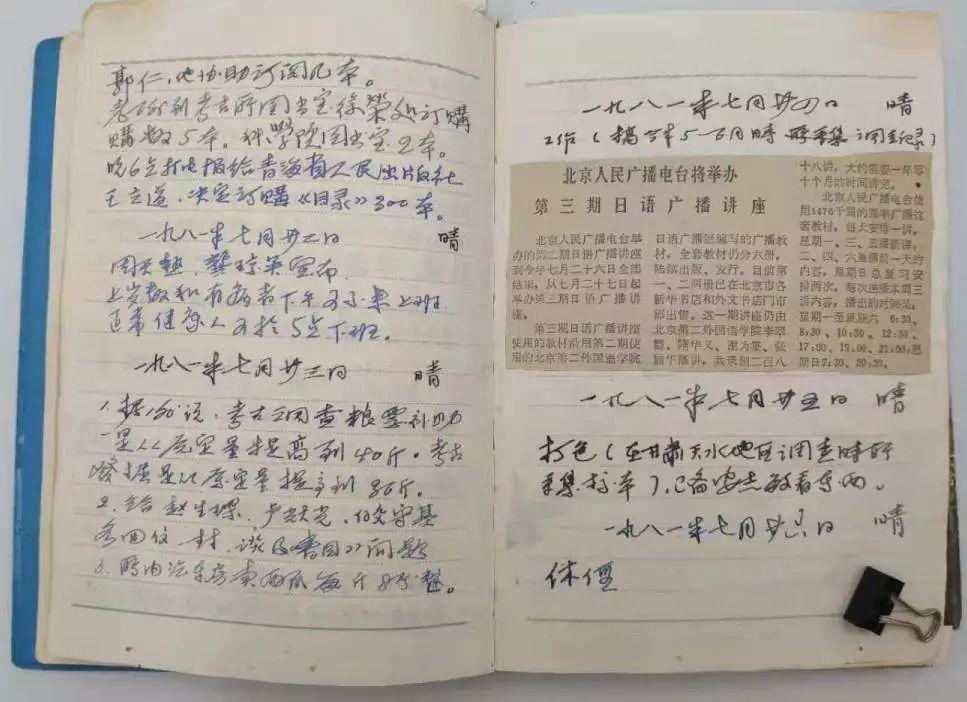 郭仁,他协助订阅几本。
考古所图书室徐荣处订購
購数5本。科學院图书室2本。
晚6点打电报给青海省人民出版社
王立道,决定订購《目录》300本。
一九八一年七月廿二日 晴
宣布
上岁数和有病者下午可不来上班
正常健康人可於5点下班。
一九八一年七月廿三日 晴
1.据 说,考古调查粮票补助
是从原定量提高到40斤。考古
發掘是从原定量提高到 斤。
2.给赵生琛、卢耀光、
各回信一封,谈及《書目》问题
3.所内汽车房卖西瓜每斤8分整。
一九八一年七月廿四日 晴
工作(搞今年5-6月时所采集调查记录)
北京人民广播电台将举办
第三期日语广播讲座
北京人民广播电台举
办的第二期日语广播讲座
到今年七月二十六日全部
结束,从七月二十七日起
举办第三期日语广播讲
座。
第三期日语广播讲座
使用的教材沿用第二期使
用的北京第二外国语学院
日语广播组编写的广播教
材,全套教材仍分六册,
陆续出版、发行。目前第
一、二册已在北京市各
新华书店和外文书店门市
部出售。这一期讲座仍由
北京第二外国语学院李翠
隋华义、谢为集、张
丽华播讲,共录制二百八
十八讲,大约需要一年零
十个月的时间讲完。
北京人民广播电台使
用1476千周的频率广播这
套教材,每天安排一讲,
星期一、三、五播新课,
二、四、六重播前一天的
内容,星期日总复习安
排两次,每次连播本周三
讲内容。播出的时间是:
星期一至星期六 6:30、
8:30、10:30、12:30、
17:00、19:00、21:00;星
期日7:30、20:30。
一九八一年七月廿五日 晴
打包(在甘肃天水地区调查时所
采集标本),已备安志敏看东西。
一九八一年七月廿六日 晴
休假